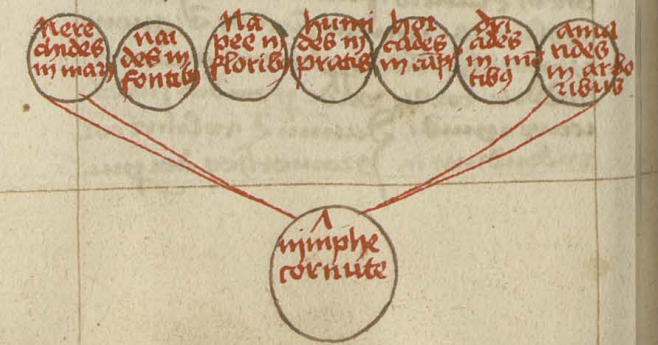 nere
aides
in mari
nai
des in
fontib
na
pee in
florib
humi
des in
pratis
hor
cades
in cāp
dri
ades
in mō
tibꝯ
ama
ndes
in arbo
ribus
nimphe
cornute